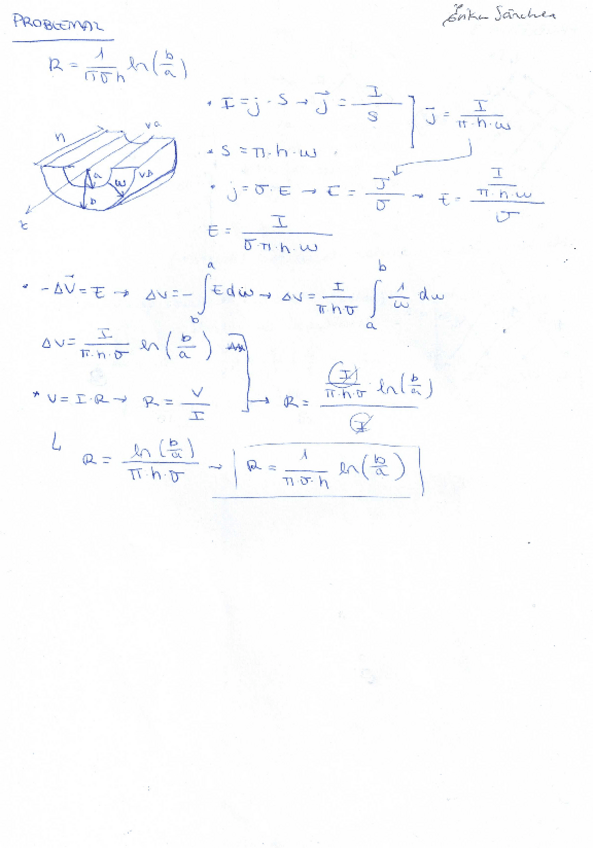 PROBLEMA 2
Erika Sánchez
R = 1/(πσh) ln(b/a)
• I = j · S → j⃗ = I/S ] j⃗ = I/(π·h·ω)
• S = π·h·ω
h
Va
a
b
ω
Vb
• j = σ·E → E = J/σ → E = (I/(π·h·ω))/σ
E = I/(σ·π·h·ω)
• -ΔV⃗ = E → ΔV = -∫_b^a E dω → ΔV = I/(πhσ) ∫_a^b 1/ω dω
ΔV = I/(π·h·σ) ln(b/a)
* V = I·R → R = V/I → R = (I/(π·h·σ) ln(b/a))/I
↳ R = ln(b/a)/(π·h·σ) → R = 1/(π·σ·h) ln(b/a)